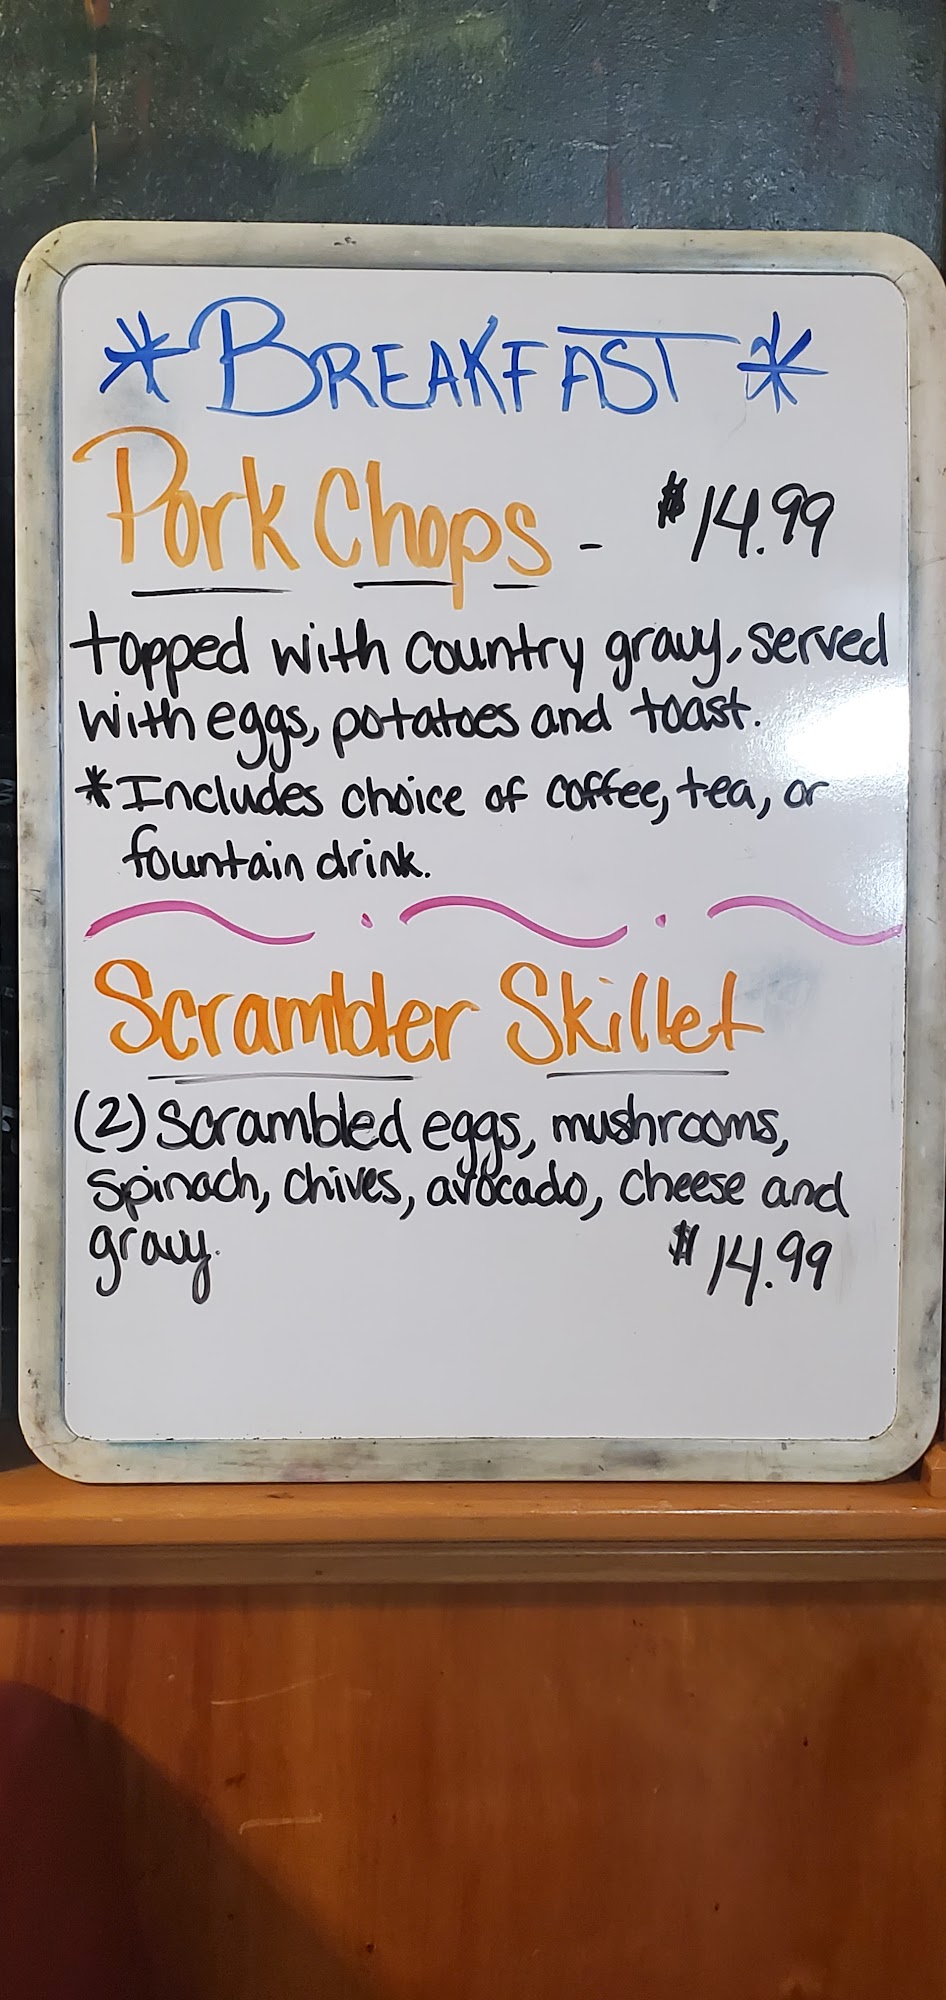 *BREAKFAST*
Pork Chops - $14.99
topped with country gravy, served
with eggs, potatoes and toast.
*Includes choice of coffee, tea, or
fountain drink.
Scrambler Skillet
(2) Scrambled eggs, mushrooms,
spinach, chives, avocado, cheese and
gravy. $14.99